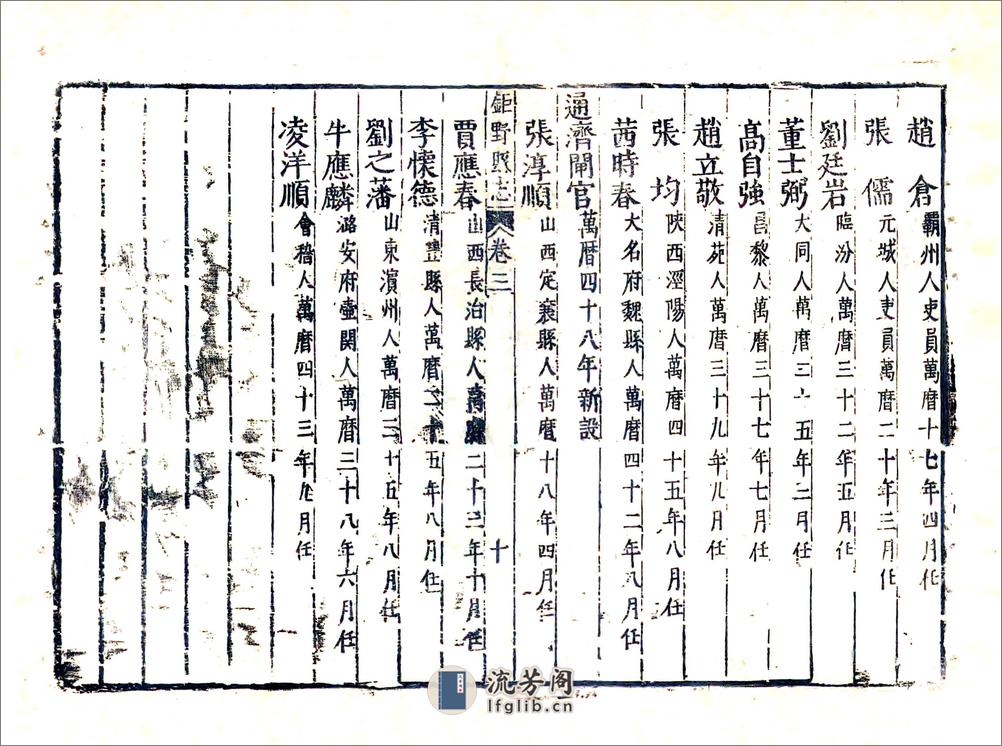 趙倉霸州人吏員萬曆十七年四月任
張儒元城人吏員萬曆二十年三月任
劉廷岩臨汾人萬曆三十二年五月任
董士弼大同人萬曆三十五年二月任
髙自強昌黎人萬曆三十七年七月任
趙立敬清苑人萬曆三十九年九月任
張均陝西涇陽人萬曆四十五年八月任
茜時春大名府魏縣人萬曆四十二年八月任
通濟閘官萬曆四十八年新設
張淳順山西定襄縣人萬曆十八年四月任
鉅野縣志卷三十
賈應春山西長治縣人萬曆二十三年十月任
李懷德清豐縣人萬曆二十五年八月任
劉之藩山東濱州人萬曆三十五年八月任
牛應麟潞安府壺關人萬曆三十八年六月任
凌洋順會稽人萬曆四十三年九月任
流芳阁
lfglib.cn